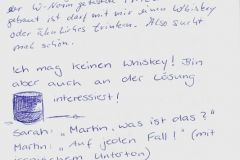 der W-Norm getestete
gebaut ist darf mit mir einen Whiskey
oder ähnliches trinken. Also sucht
mal schön.
Ich mag keinen Whiskey! Bin
aber auch an der Lösung
interessiert!
Sarah: "Martin, was ist das?"
Martin: "Auf jeden Fall!" (mit
ironischem Unterton)